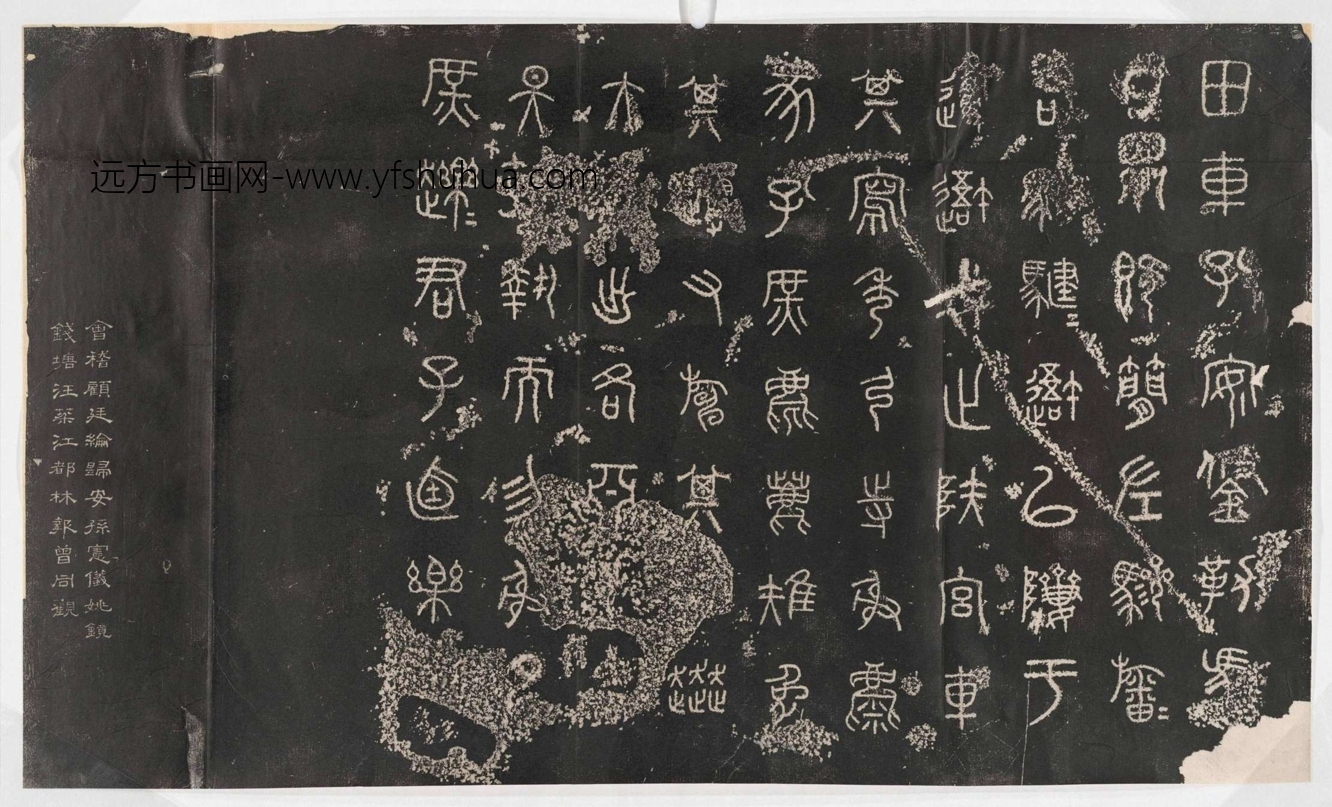 田車孔安鋚勒馬
四介既簡左驂旛=
右驂騝=𨘷以隮于
邍𨘷戎止陝宮車
其寫秀弓寺射麋
豕孔庶麀鹿雉兔
其又旃其𧼒
大出各亞
昊執而勿射
庶趮=君子逌樂
會稽顧廷綸歸安孫憲儀姚鏡
錢塘汪江都林報曾同觀
远方书画网-www.yfshuhua.com